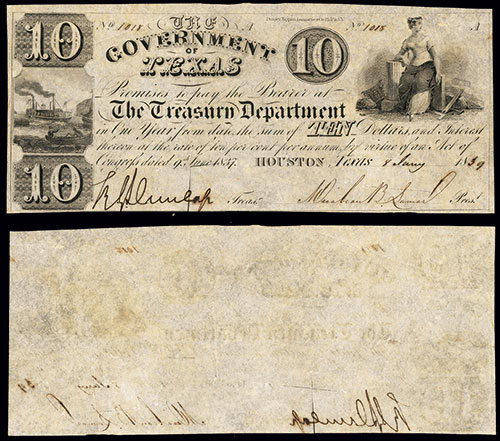 No 1018 A No 1018 A
10 THE 10
GOVERNMENT
OF
TEXAS
Promises to pay the Bearer at
The Treasury Department
in One Year from date, the sum of TEN Dollars, and Interest
thereon at the rate of ten per cent per annum, by virtue of an Act of
Congress dated 9th June 1837. HOUSTON, Texas 8 Jany 1839
10 R G Dunlap Treasr. Mirabeau B. Lamar Presi.